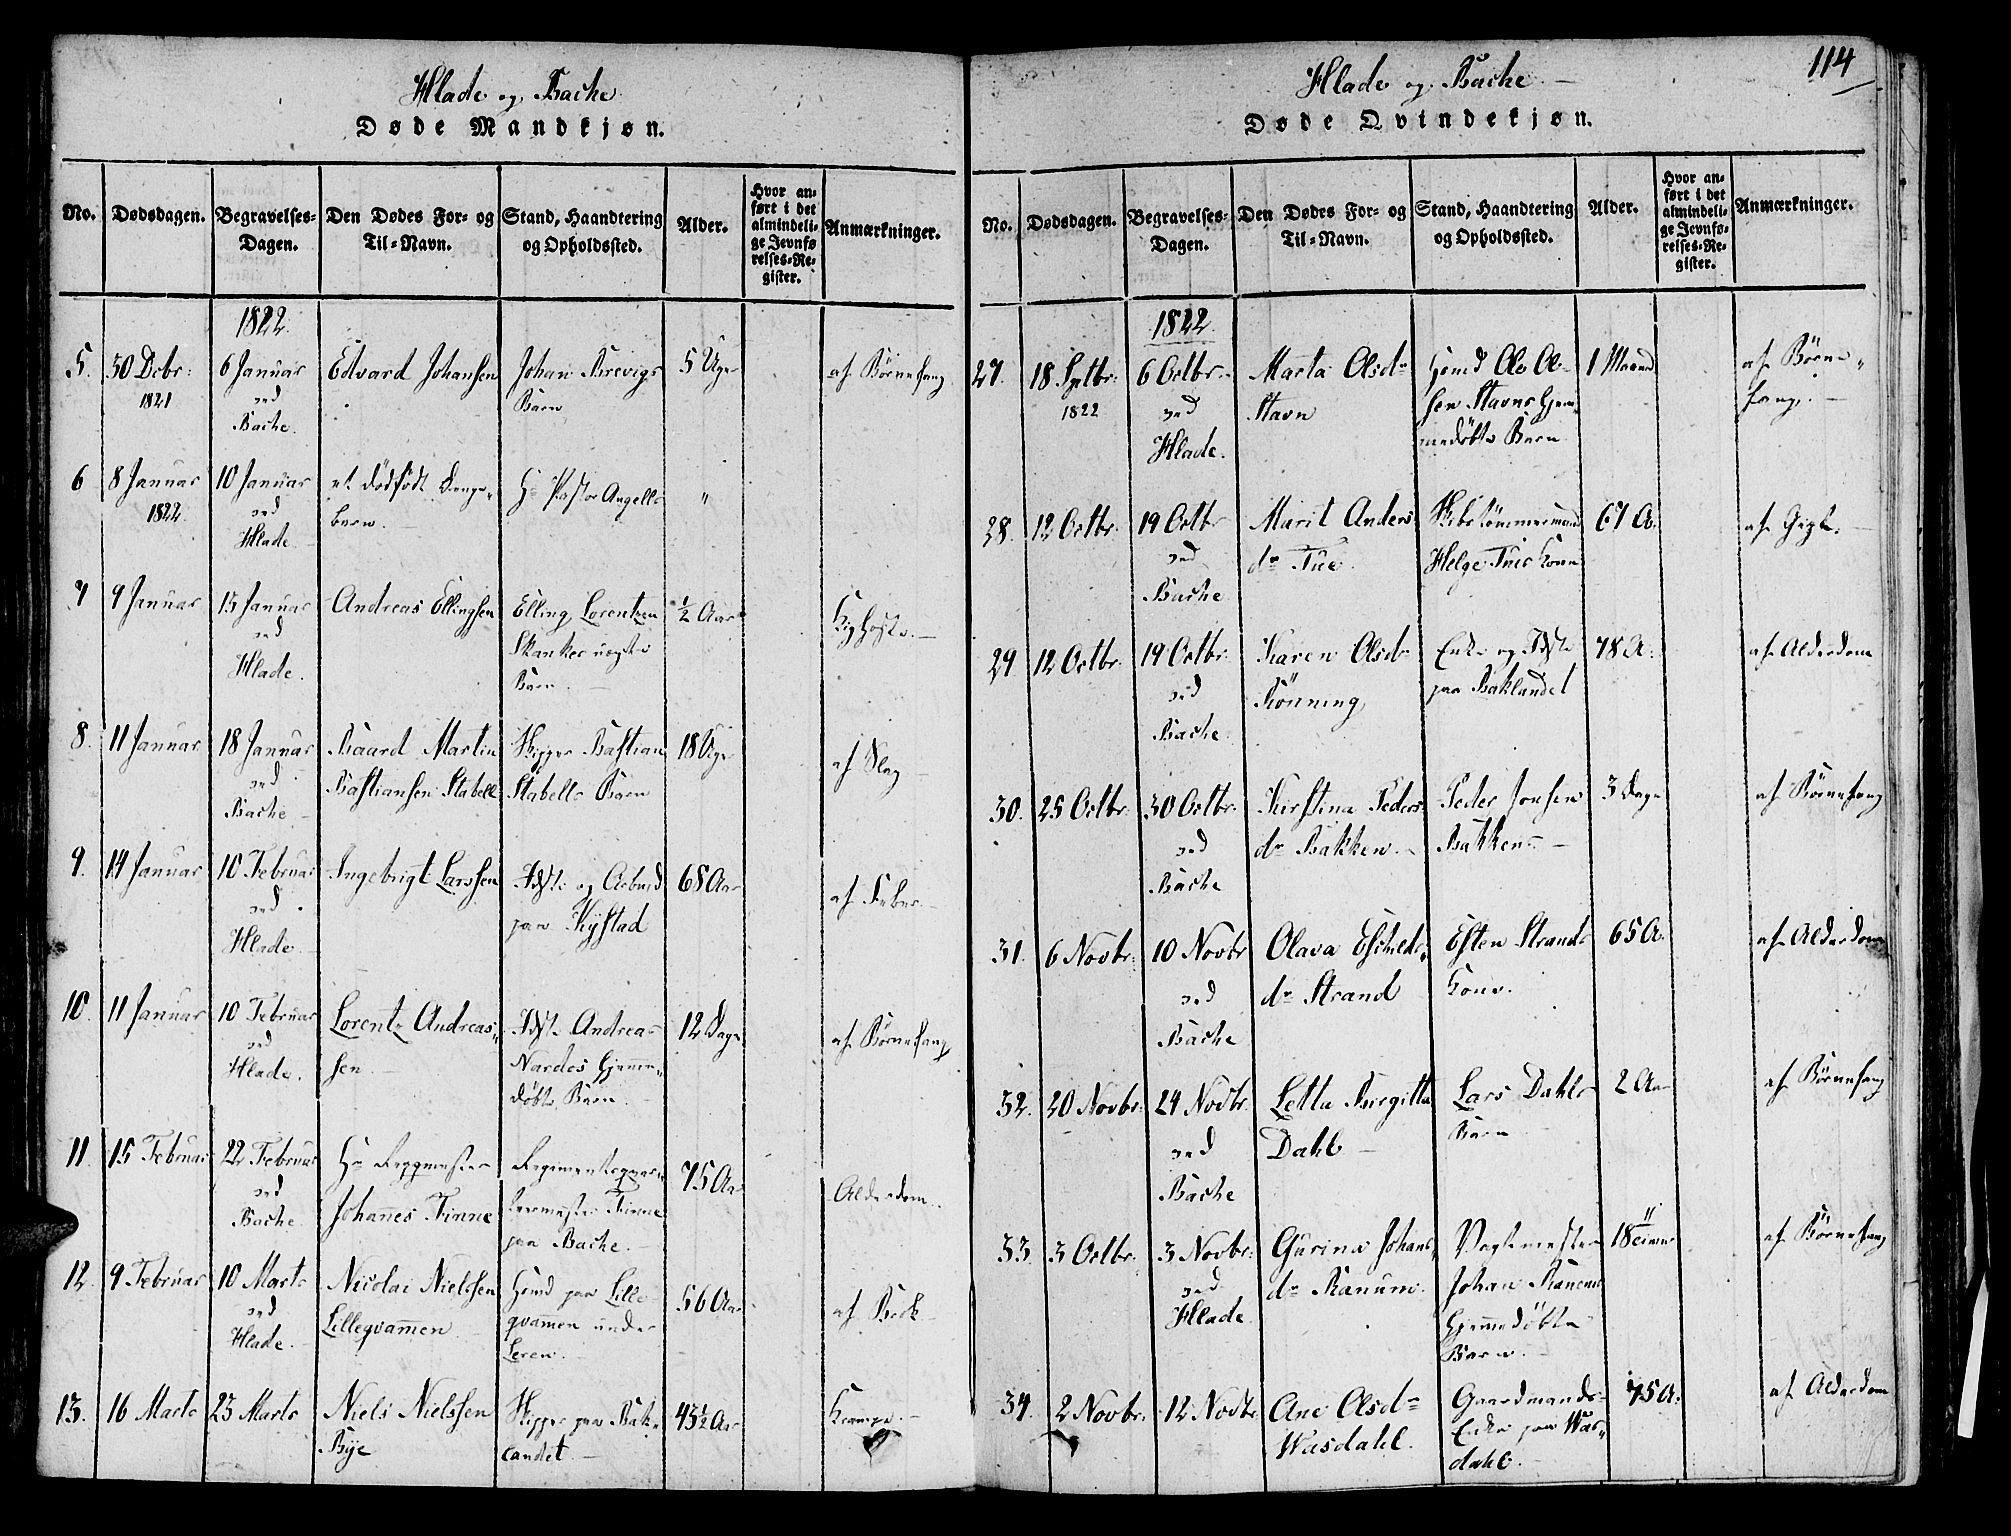 Hlade og Bache
Døde Mandkjøn.
No. Dødsdagen. Begravelses-Dagen. Den Dødes For- og Til-Navn. Stand, Haandtering og Opholdssted. Alder. Hvor anført i det almindelige Jevnførelses-Register. Anmærkninger.
1822.
5. 30 Debr: 6 Januar Edvard Johansen Johan Brevigs 5 Uger af Börnefang
1821 ved Barn
Bache.
6 8 Januar 10 Januar et dödfödt Drenge„ Hr Pastor Angells "
1822 ved barn.
Hlade
7 9 Januar 15 Januar Andreas Ellingsen Elling Lorentzen ½ Aar Kighoste.
ved Skankes uægte
Hlade. Barn.
8. 11 Januar 18 Januar Baard Martin Skipper Bastian 18 Uger af Slag
ved Bastiansen Stabell Stabells Barn
Bache
9. 14 Januar 10 Februar Ingebrigt Larssen Indste og Arbmd 68 Aar af Feber.
ved paa Kystad
Hlade.
10. 11 Januar 10 Februar Lorentz Andreas„ Indste Andreas 12 Dage af Börnefang
ved sen. Nardos Hjemme„
Hlade. döbte Barn.
11 15 Februar 22 Februar Hr Regqmester Regimentsqvar„ 75 Aar Alderdom.
ved Johanes Finne teermester Finne
Bache paa Bache.
12. 9 Februar 10 Marts Nicolai Nielssen Huusmd paa Lille 56 Aar af Brok
ved Lilleqvamen qvamen under
Hlade Leren.
13. 16 Marts 23 Marts Niels Nielssen Skipper paa Bak„ 43½ Aar Krampe.
Bye landet.
114
Hlade og Bache
Døde Qvindekjøn.
No. Dødsdagen. Begravelses-Dagen. Den Dødes For- og Til-Navn. Stand, Haandtering og Opholdssted. Alder. Hvor anført i det almindelige Jevnførelses-Register. Anmærkninger.
1822.
27. 18 Septbr: 6 Octbr: Marta Olsdr Huusmd Ole Ol- 1 Maaned af Börne„
1822 ved Stavn sen Stavns Hjem„ fang.
Hlade. medöbte Barn
28. 12 Octbr: 19 Octbr Marit Anders Skibstömmermand 67 A. af Gigt.
ved dr Tue. Helge Tues Kone
Bache
29 12 Octbr: 19 Octbr: Karen Olsdr Enke og Indste 78 A: af Alderdom
ved Rönning paa Baklandet
Bache
30. 25 Octbr: 30 Octbr: Kirstina Peders Peder Jonsen 3 Dage af Börnefang
ved dr Bakken. Bakken
Bache
31. 6 Novbr: 10 Novbr Olava Eschilds„ Esten Strands 65 A. af Alderdom
ved dr Strand Kone.
Bache
32. 20 Novbr: 24 Novbr Letta Birgitta Lars Dahls 2 Aar af Börnefang
ved Dahl Barn
Bache
33. 3 Octbr: 3 Novbr: Gurina Johans„ Vagtmester 18 af Börnefang
ved dr Ranum. Johan Ranums
Hlade Hjemmedöbte
Barn.
34. 2 Novbr: 12 Novbr Ane Olsdr Gaardmands 75 A. af Alderdom
Wasdahl. Enke paa Was„
dahl.